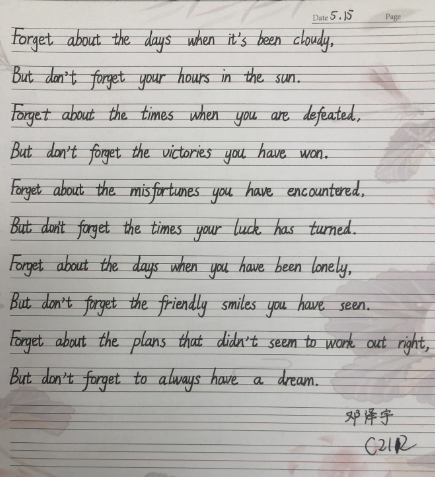 Date 5.15 Page
Forget about the days when it's been cloudy,
But don't forget your hours in the sun.
Forget about the times when you are defeated,
But don't forget the victories you have won.
Forget about the misfortunes you have encountered,
But don't forget the times your luck has turned.
Forget about the days when you have been lonely,
But don't forget the friendly smiles you have seen.
Forget about the plans that didn't seem to work out right,
But don't forget to always have a dream.
邓泽宇